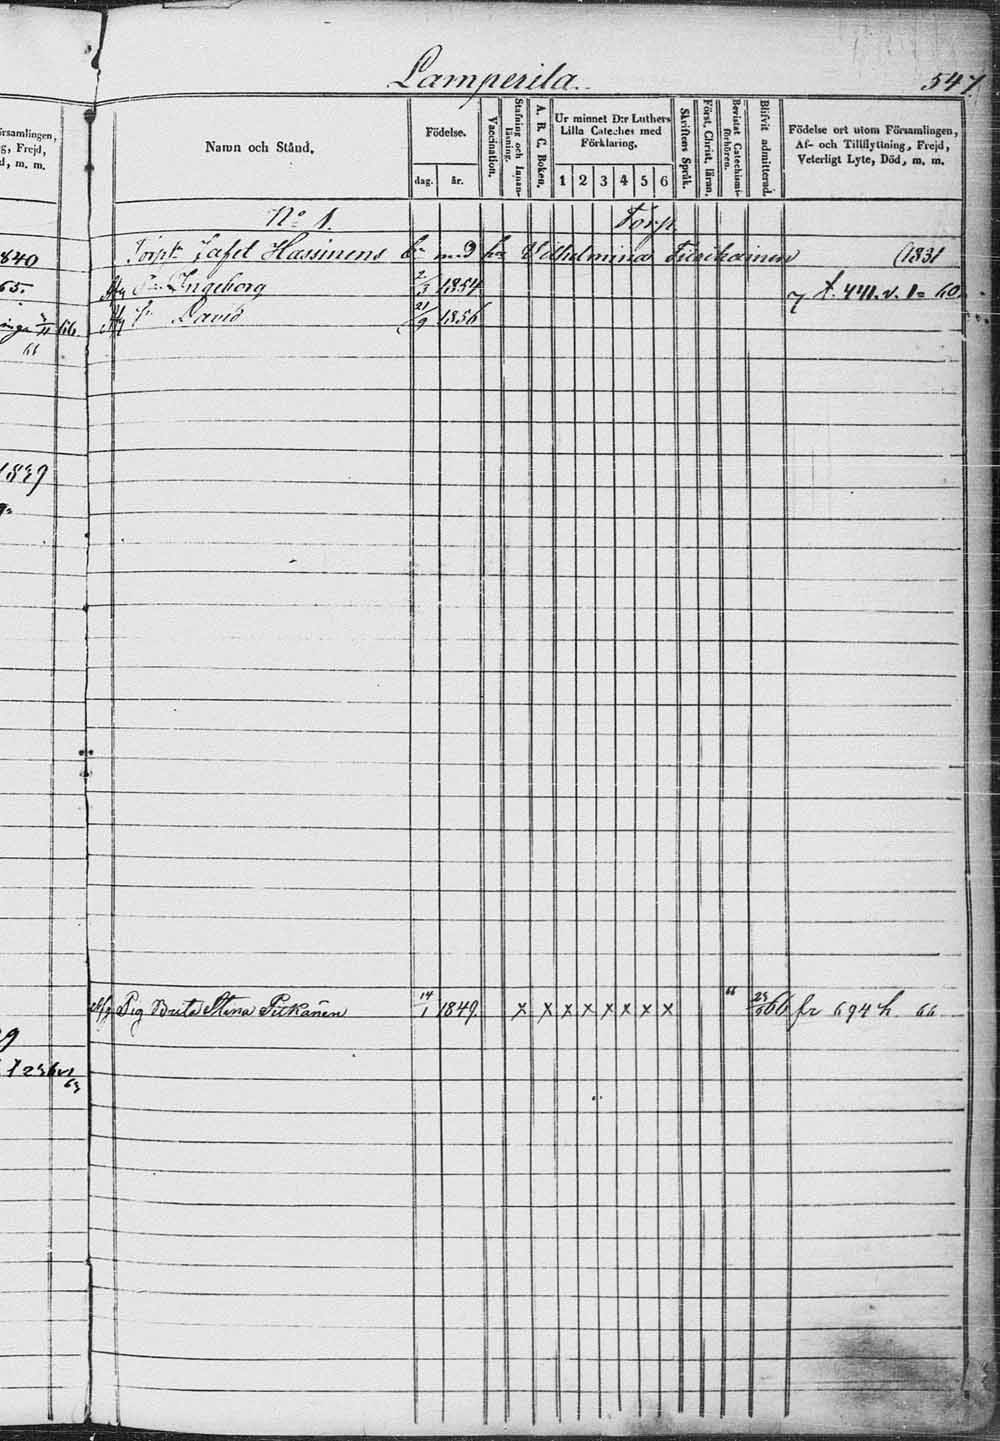 Lamperila.
547
örsamlingen,
g, Frejd,
d, m. m.
Namn och Stånd.
Födelse.
dag. år.
Vaccination.
Stafning och Innanläsning.
A. B. C. Boken.
Ur minnet D:r Luthers
Lilla Cateches med
Förklaring.
1 2 3 4 5 6
Skriftens Språk.
Förest. Christ. läran.
Bevistat Catechismiförhören.
Blifvit admitterad.
Födelse ort utom Församlingen,
Af- och Tillflyttning, Frejd,
Veterligt Lyte, Död, m. m.
No 1. Torp.
1840
Torp: Jafet Hassinens Vilhelmina (1831
65.
Ingeborg 2/3 1854
t. 441. v. 1= 60
David 21/9 1856
66
1839
Pig Brita Stina Pitkänen 14/1 1849. x x x x x x x x " 66 fr 694 h. 66
63